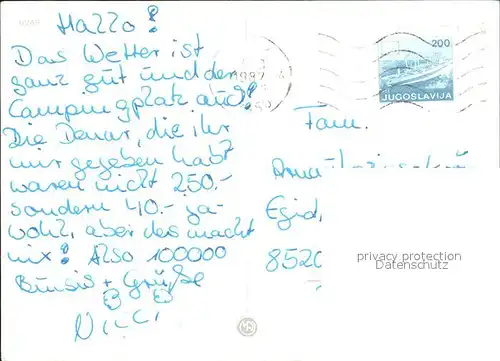 Hallo!
Das Wetter ist
ganz gut und der
Campingplatz auch!
Die Denar, die ihr
mir gegeben habt
waren nicht 250.-
sondern 40.- ja-
wohl, aber des macht
nix! Also 100000
Bussis + Grüße
200
JUGOSLAVIJA
Fam.
Egid
8520
privacy protection
Datenschutz